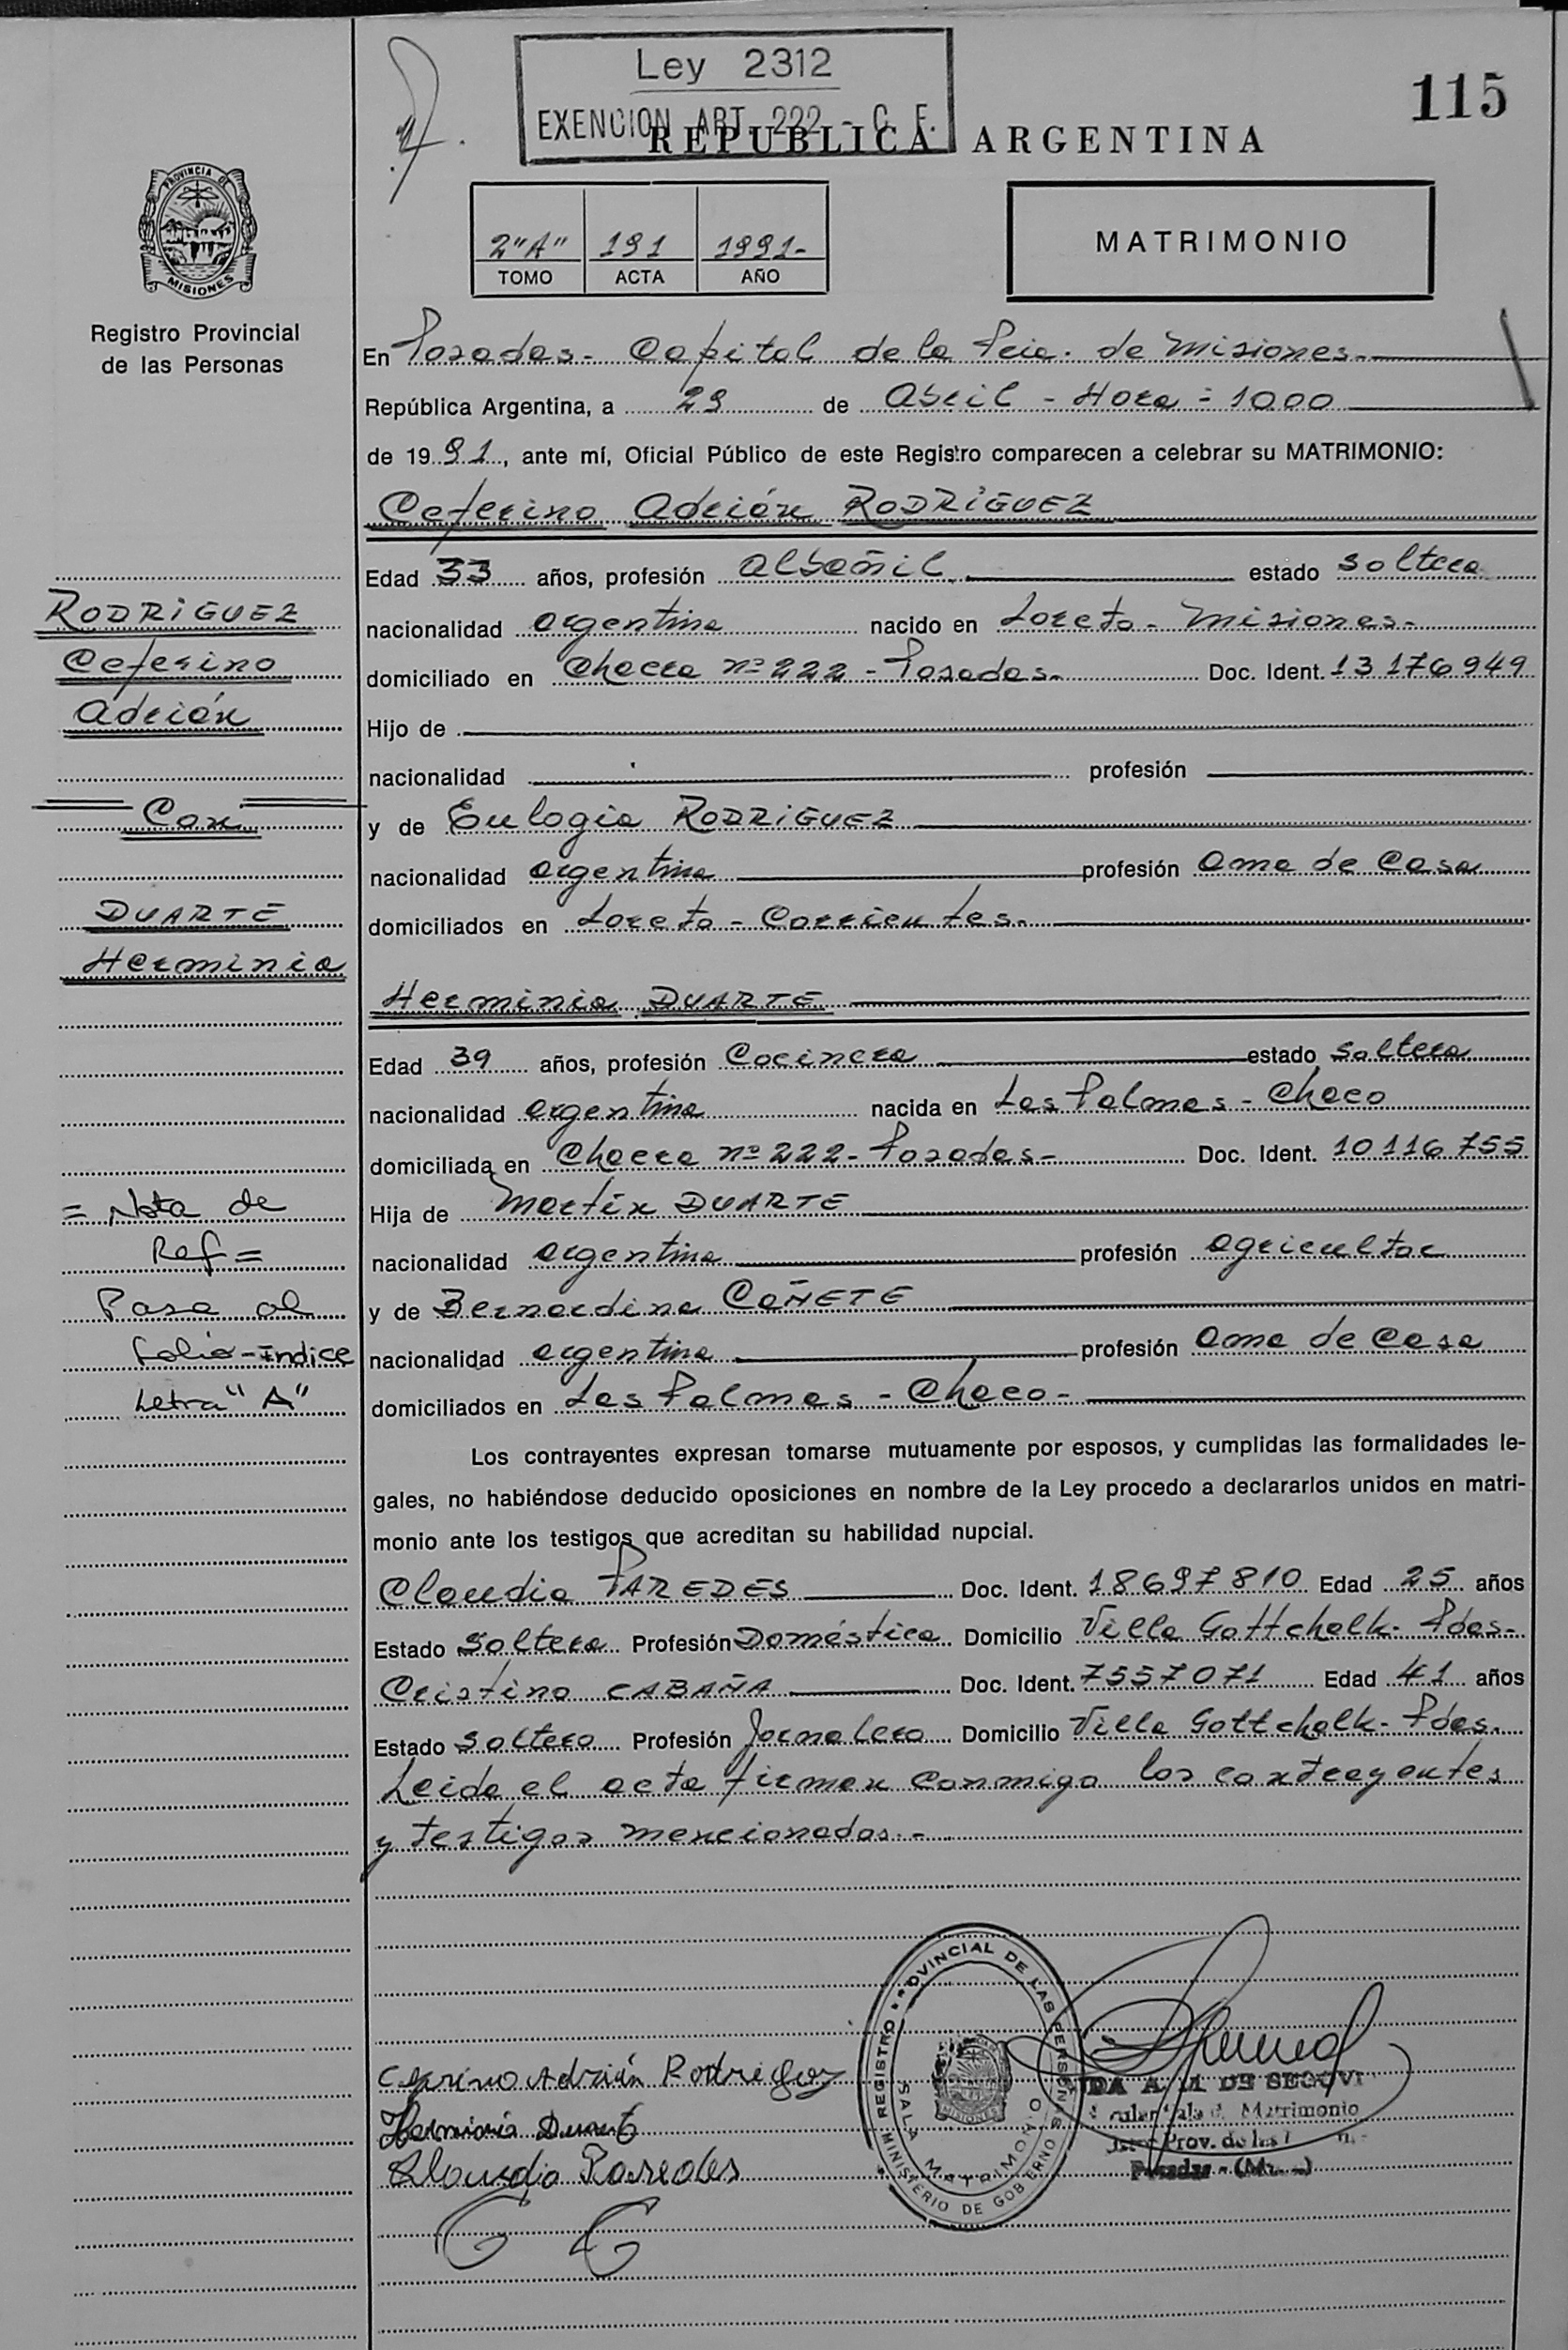 Ley 2312
EXENCION ART. 222 - C. F.
115
REPUBLICA ARGENTINA
PROVINCIA DE
MISIONES
Registro Provincial
de las Personas
2"A" 191 1991-
TOMO ACTA AÑO
MATRIMONIO
En Posadas- Capital de la Pcia. de Misiones-
República Argentina, a 29 de Abril - Hora = 1000
de 1991, ante mí, Oficial Público de este Registro comparecen a celebrar su MATRIMONIO:
Ceferino Adrián RODRÍGUEZ
Edad 33 años, profesión albañil estado soltero
nacionalidad argentina nacido en Loreto- Misiones-
domiciliado en Chacra nº 222 - Posadas- Doc. Ident. 13176949
Hijo de
nacionalidad profesión
y de Eulogia RODRIGUEZ
nacionalidad argentina profesión ama de casa
domiciliados en Loreto - Corrientes-
Herminia DUARTE
Edad 39 años, profesión Cocinera estado soltera
nacionalidad argentina nacida en Las Palmas - Chaco
domiciliada en Chacra nº 222- Posadas- Doc. Ident. 10116755
Hija de Martín DUARTE
nacionalidad argentina profesión agricultor
y de Bernardina CAÑETE
nacionalidad argentina profesión ama de casa
domiciliados en Las Palmas - Chaco-
Los contrayentes expresan tomarse mutuamente por esposos, y cumplidas las formalidades le-
gales, no habiéndose deducido oposiciones en nombre de la Ley procedo a declararlos unidos en matri-
monio ante los testigos que acreditan su habilidad nupcial.
Claudia PAREDES Doc. Ident. 18697810 Edad 25 años
Estado soltera Profesión Doméstica Domicilio Villa Gottchalk- Pdas-
Cristino CABAÑA Doc. Ident. 7557071 Edad 41 años
Estado soltero Profesión Jornalero Domicilio Villa Gottchalk- Pdas.
Leida el acta firman conmigo los contrayentes
y testigos mencionados.-
RODRÍGUEZ
Ceferino
Adrián
Con
DUARTE
Herminia
= Nota de
Ref =
Pasa al
folio-indice
Letra "A"
Ceferino Adrián Rodriguez
Herminia Duarte
Claudia Paredes
C C
REGISTRO PROVINCIAL DE LAS PERSONAS
SALA MATRIMONIO
MISIONES
MINISTERIO DE GOBIERNO
DE SEGOVI
Matrimonio
Prov. de las
Posadas - (